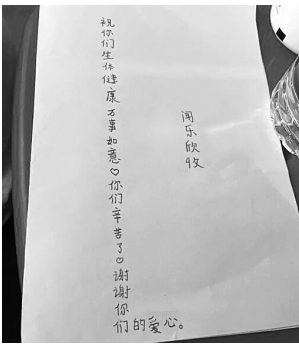 祝你们生体健康万事如意♡你们辛苦了♡谢谢你们的爱心。
闻乐欣收